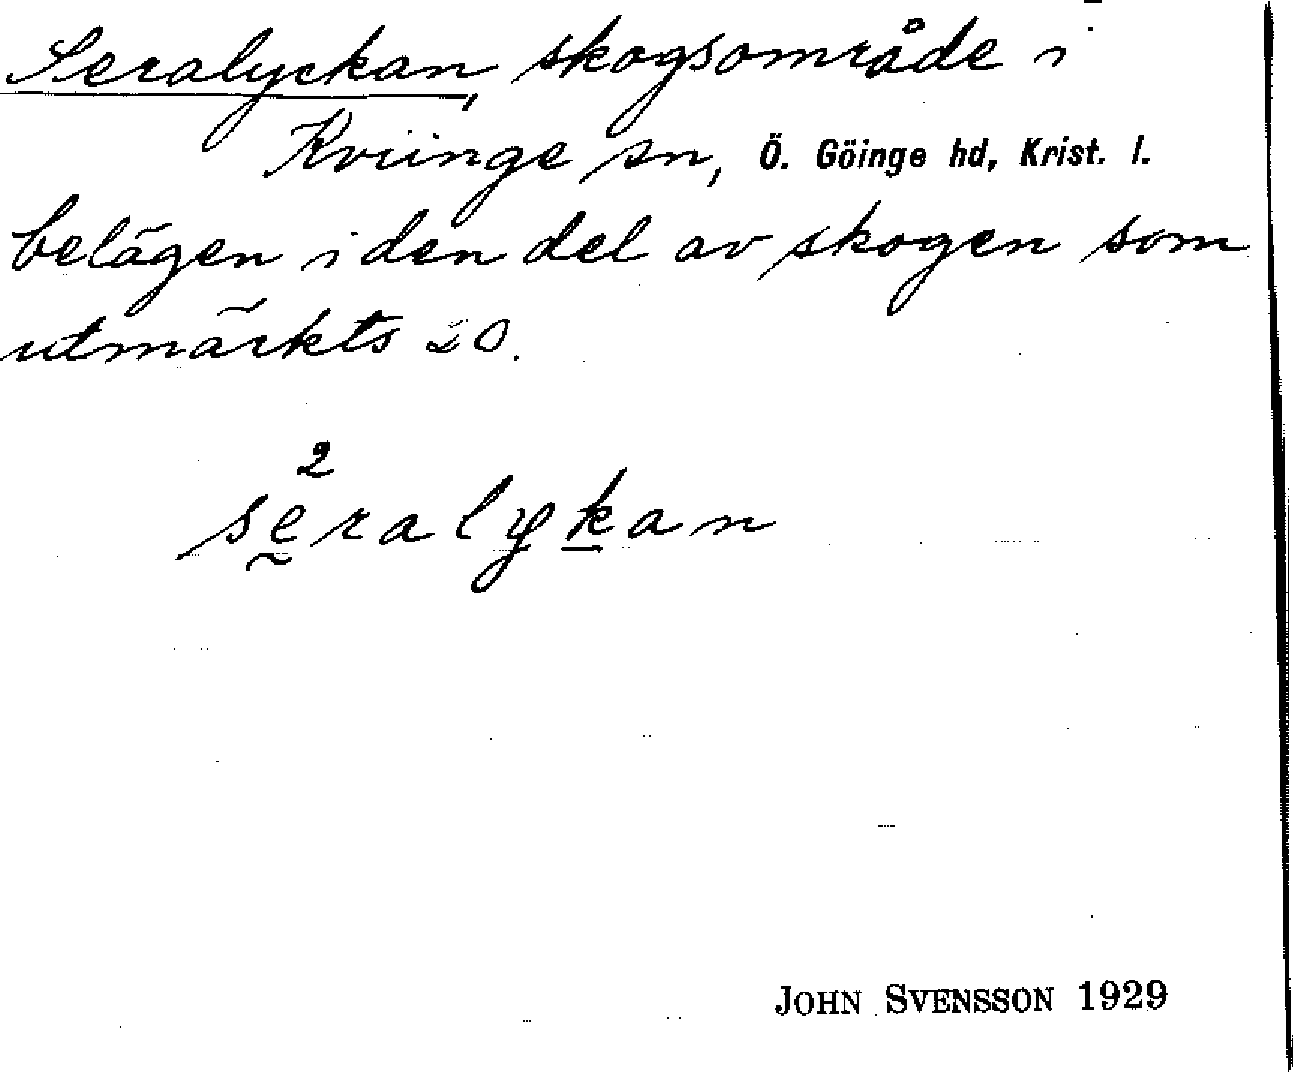 Seralyckan, skogsområde i
Kviinge sn, Ö. Göinge hd, Krist. l.
belägen i den del av skogen som
utmärkts 20.
2
sḛralyk̲an
JOHN SVENSSON 1929